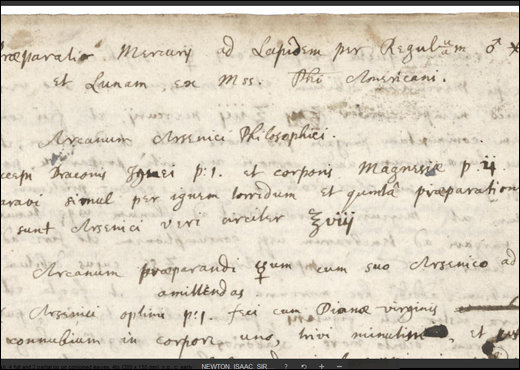 Præparatio Mercurij ad Lapidem per Regulum ♂
et Lunam, ex Mss. Phi Americani.
Arcanum Arsenici Philosophici.
Draconis Ignei p: 1. et corporis Magnesiæ p. ij
simul per ignem torridum et quinta præparation
sunt Arsenici veri circiter ℥viij
Arcanum præparandi ☿um cum suo Arsenico ad
amittendas
Arsenici optimi p: 1. feci cum Dianæ virginis
connubium in corpore uno, trivi minutim, et
NEWTON, ISAAC, SIR.